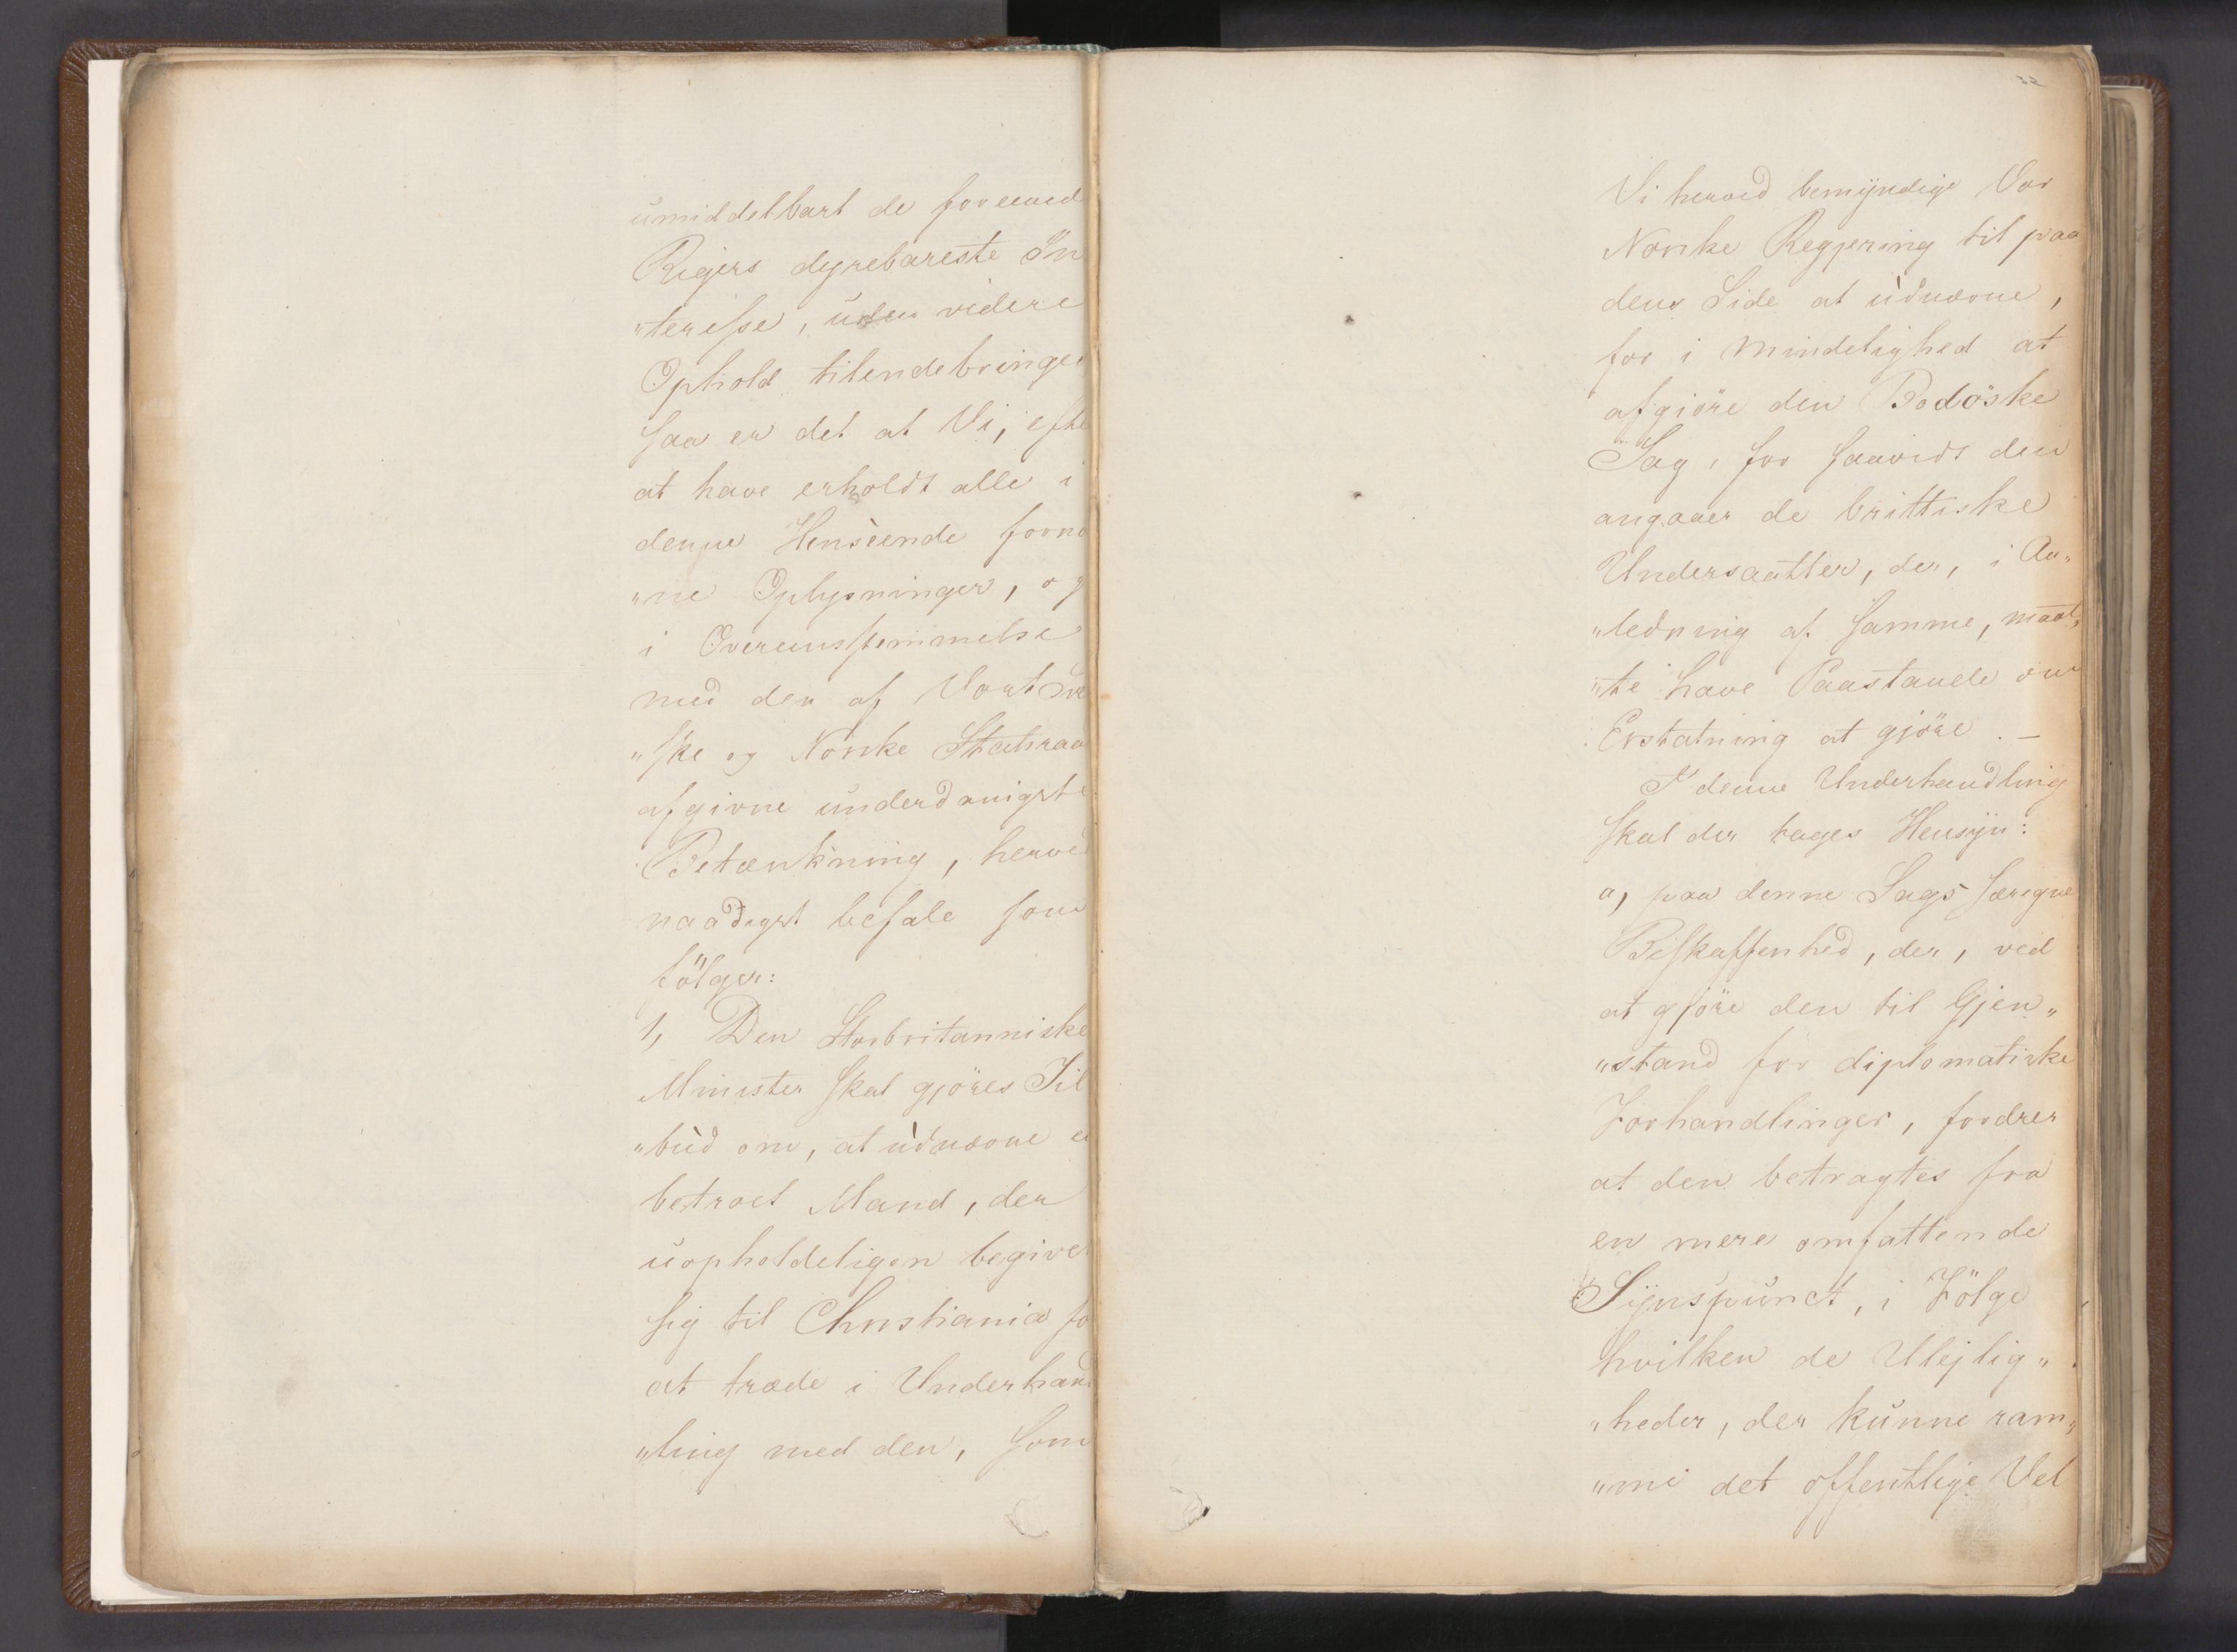 umiddelbart de foreened
Rigers dyrebareste In
"teresse, uden videre
Ophold tilendebringes
saa er det at Vi, efte
at have erholdt alle i
denne Henseende fornö
"ne Oplysninger, og
i Overeensstemmelse
med den af Vort Sve
"ske og Norske Statsraad
afgivne underdanigste
Betænkning, herved
naadigst befale som
fölger:
1, Den Storbritanniske
Minister skal gjöres Til
"bud om, at udnævne e
betroet Mand, der
uopholdeligen begiver
sig til Christiania fo
at træde i Underhand
"ling med den, som
32
Vi herved bemyndige Vor
Norske Regjering til paa
dens Side at udnævne,
for i Mindelighed at
afgiöre den Bodöske
Sag, for saavidt den
angaaer de brittiske
Undersaatter, der, i An"
"ledning af samme, maat"
"te have Paastande om
Erstatning at gjöre. —
I denne Underhandling
skal der tages Hensyn:
a, paa denne Sags særegne
Beskaffenhed, der, ved
at gjöre den til Gjen"
"stand for diplomatiske
Forhandlinger, fordrer
at den betragtes fra
en mere omfattende
Synspunct, i Fölge
hvilken de Ulejlig"
"heder, der kunne ram"
"me det offentlige Vel